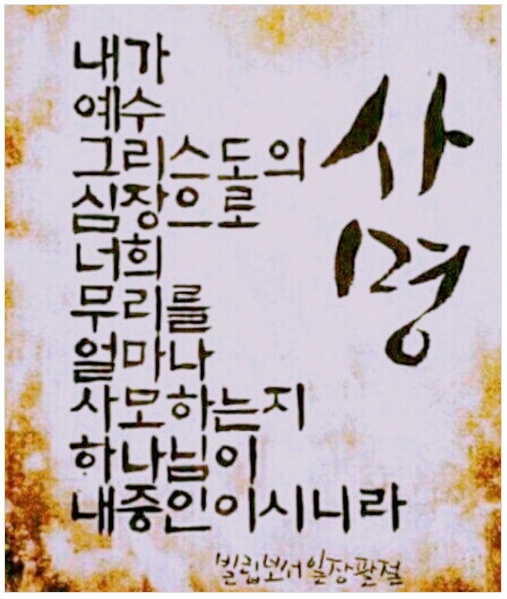 사명
내가
예수
그리스도의
심장으로
너희
무리를
얼마나
사모하는지
하나님이
내중인이시니라
빌립보서일장팔절